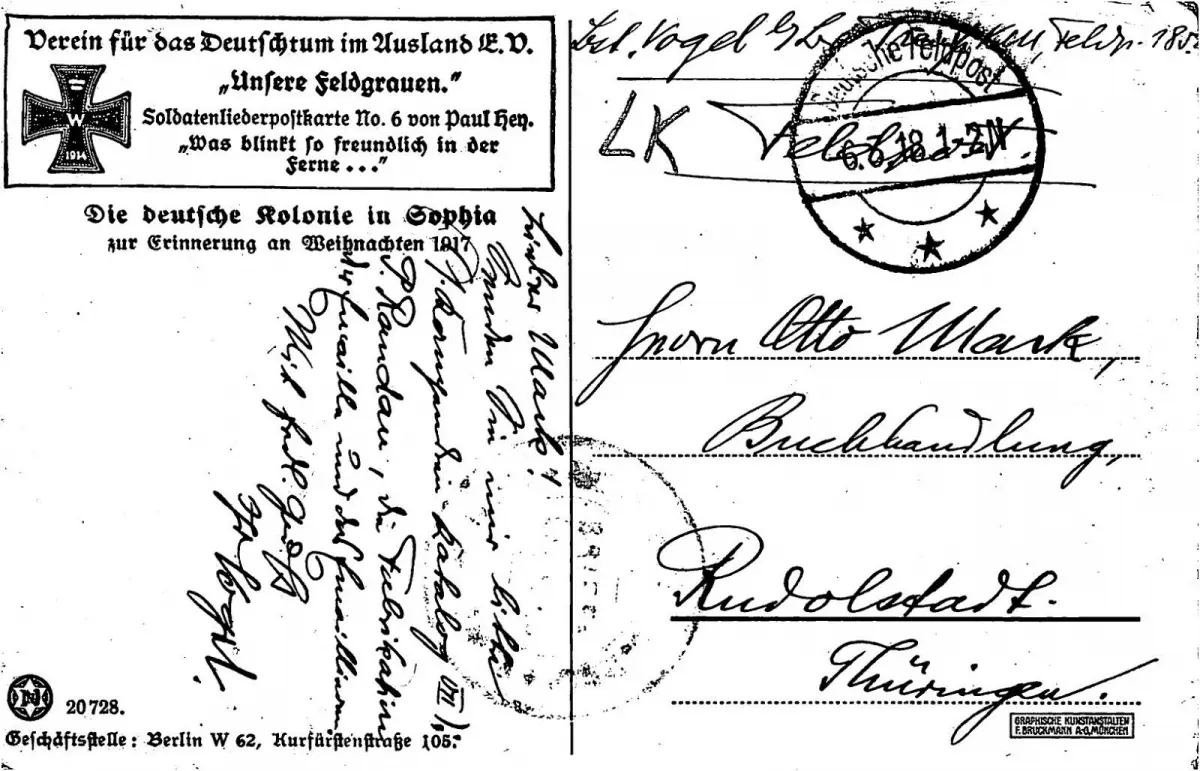 Verein für das Deutschtum im Ausland E.V.
„Unsere Feldgrauen."
Soldatenliederpostkarte No. 6 von Paul Hey.
„Was blinkt so freundlich in der
Ferne..."
W
1914
Die deutsche Kolonie in Sophia
zur Erinnerung an Weihnachten 1917
Lieber Mark!
Senden Sie mir bitte
Katalog VII
P. Randau, die Fabrikation
der Emaille und das Emaillieren
Mit frdl. Gruß
Ihr Vogel.
20728.
Geschäftsstelle: Berlin W 62, Kurfürstenstraße 105.
Vogel
Deutsche Feldpost
6.6.18.1-2N
LK
Herrn Otto Mark,
Buchhandlung,
Rudolstadt.
Thüringen.
GRAPHISCHE KUNSTANSTALTEN
F. BRUCKMANN A-G, MÜNCHEN